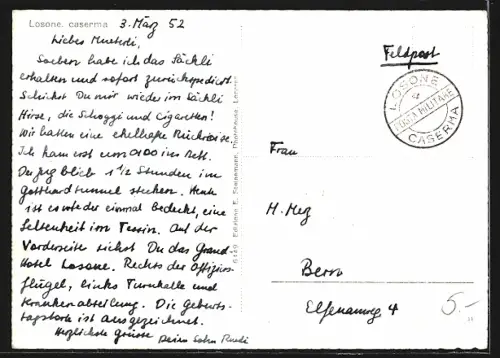 Losone. caserma
3. März 52
Liebes Muetsli,
Soeben habe ich das Säckli
erhalten und sofort zurückspediert.
Schickst Du mir wieder im Säckli
Hirse, die Schoggi und Cigaretten!
Wir hatten eine ekelhafte Rückreise.
Ich kam erst um 0100 ins Bett.
Der Zug blieb 1 1/2 Stunden im
Gotthardtunnel stecken. Heute
ist es wieder einmal bedeckt, eine
Seltenheit im Tessin. Auf der
Vorderseite siehst Du das Grand-
Hotel Losone. Rechts der Offiziers-
flügel, links Turnhalle und
Krankenabteilung. Die Geburts-
tagstorte ist ausgezeichnet.
Herzlichste Grüsse
Deine Sohn Ruedi
6149 Edizione E. Steinemann, Locarno
Feldpost
LOSONE
4
POSTA MILITARE
CASERMA
Frau
H. Merz
Bern
Elfenauweg 4
5.-